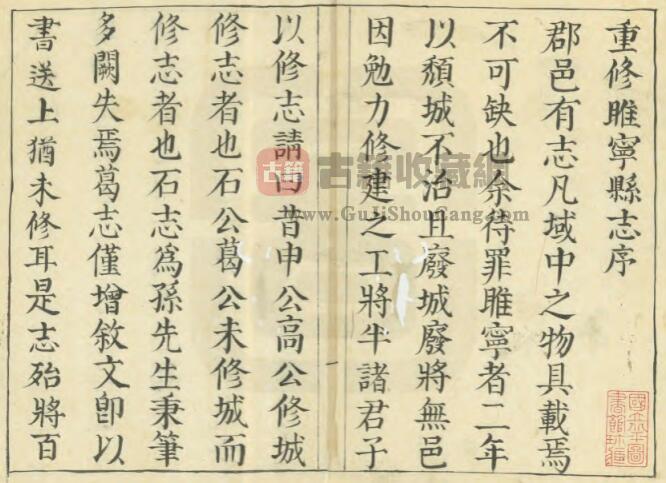 重修睢寧縣志序
郡邑有志凡域中之物具載焉
不可缺也余待罪睢寧者二年
以頹城不治且廢城廢將無邑
因勉力修建之工將半諸君子
以修志請曰昔申公高公修城
修志者也石公葛公未修城而
修志者也石志爲孫先生秉筆
多闕失焉葛志僅增敘文卽以
書送上猶未修耳是志殆將百
古籍
古籍收藏網
www.GuJiShouCang.com